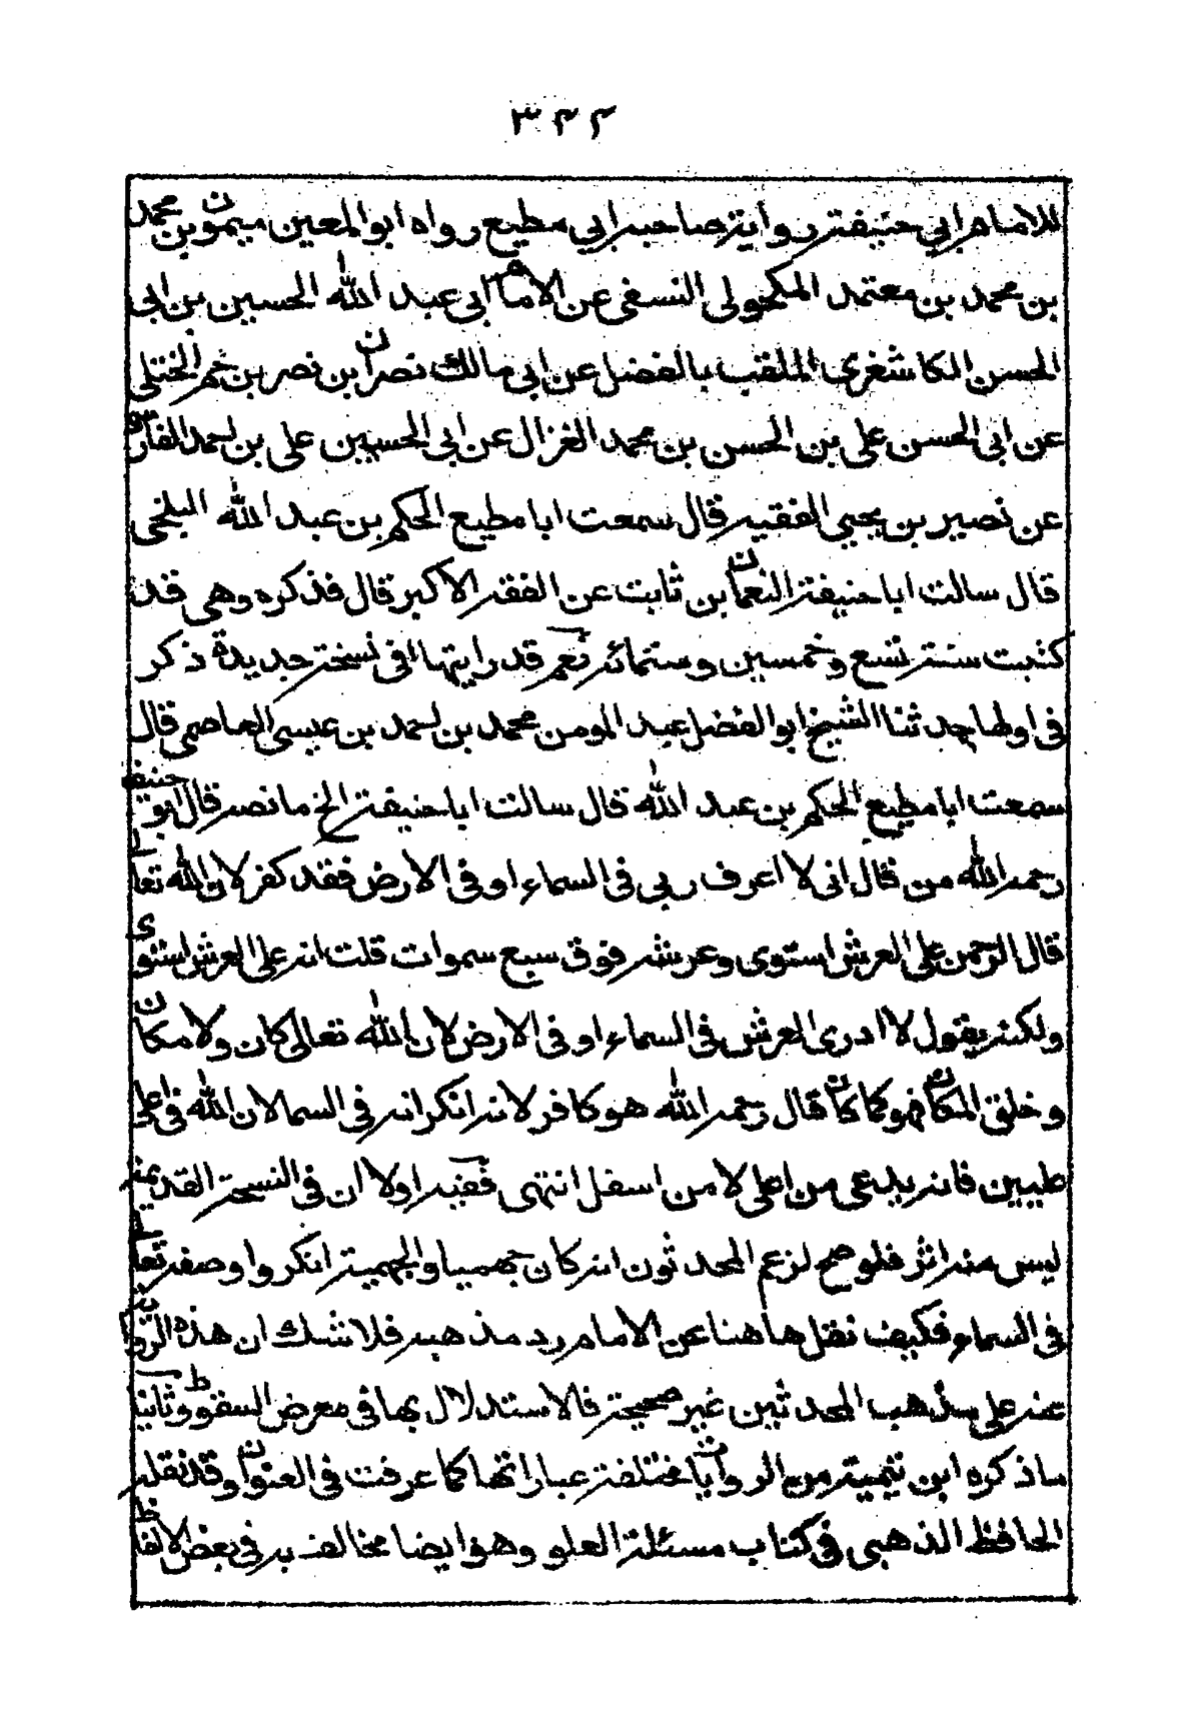 ٣٤٤
للامام ابي حنيفة رواية صاحبه ابي مطيع رواه ابو المعين ميمون بن محمد
بن محمد بن معتمد المكحولى النسفى عن الامام ابى عبد الله الحسين بن ابى
الحسن الكاشغرى الملقب بالفضل عن ابى مالك نصران بن نصر بن ختم الختلى
عن ابى الحسن على بن الحسن بن محمد الغزال عن ابى الحسين على بن احمد الفارسى
عن نصير بن يحيي الفقيه قال سمعت ابا مطيع الحكم بن عبد الله البلخى
قال سالت ابا حنيفة النعمان بن ثابت عن الفقه الاكبر قال فذكره وهى قد
كتبت سنة تسع وخمسين وستمائة نعم قد رايتها فى نسخة جديدة ذكر
فى اولها حدثنا الشيخ ابو الفضل عبد المومن محمد بن احمد بن عيسى العاصمى قال
سمعت ابا مطيع الحكم بن عبد الله قال سالت ابا حنيفة الخ ما نصه قال ابو حنيفة
رحمه الله من قال انى لا اعرف ربى فى السماء او فى الارض فقد كفر لان الله تعالى
قال الرحمن على العرش استوى وعرشه فوق سبع سموات قلت انه على العرش استوى
ولكنه يقول لا ادرى العرش فى السماء او فى الارض لان الله تعالى كان ولا مكان
وخلق المكان فهو كما كان قال رحمه الله هو كافر لانه انكر انه فى السما لان الله فى اعلى
عليين فانه يدعى من اعلى لا من اسفل انتهى ففيه اولا ان فى النسخة القديمة
ليس منه اثر فلو صح لزعم المحدثون انه كان جهميا والجهمية انكروا وصفه تعالى
فى السماء فكيف نقل هاهنا عن الامام رد مذهبه فلا شك ان هذه الرواية
عنه على مذهب المحدثين غير صحيحة فالاستدلال بها فى معرض السقوط وثانيا
ما ذكره ابن تيمية من الروايات مختلفة عباراتها كما عرفت فى العنوان وقد نقله
الحافظ الذهبى فى كتاب مسئلة العلو وهو ايضا مخالف به فى بعض الالفاظ